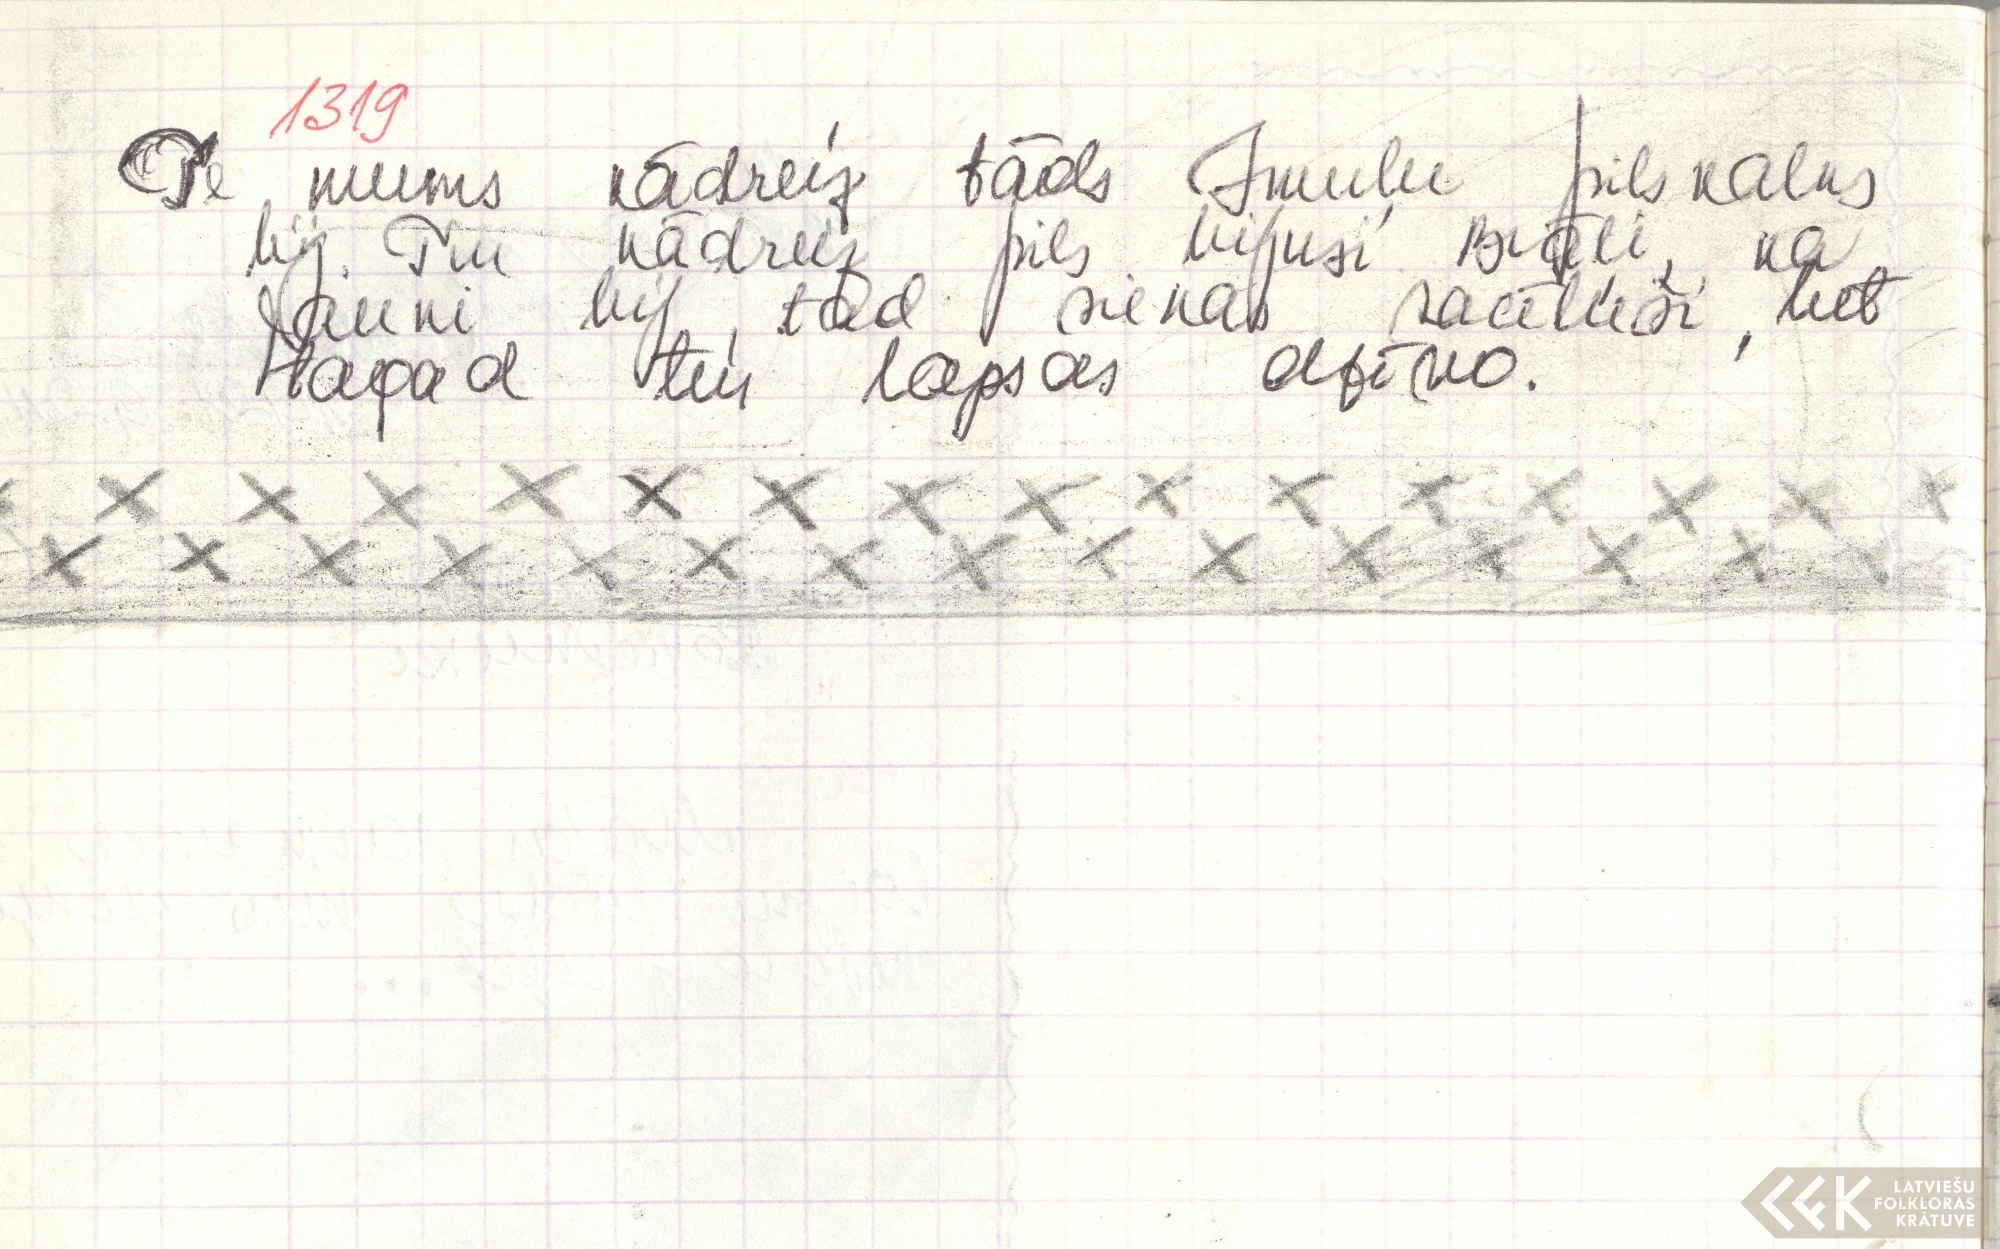 1319
Te mums kādreiz tāds Imulu pilskalns
bij. Tur kādreiz pils bijusi. Bieži, kā
jauni bij, tad sienas racēluši, bet
tagad tur lapsas dzīvo.
LATVIEŠU
FOLKLORAS
KRĀTUVE